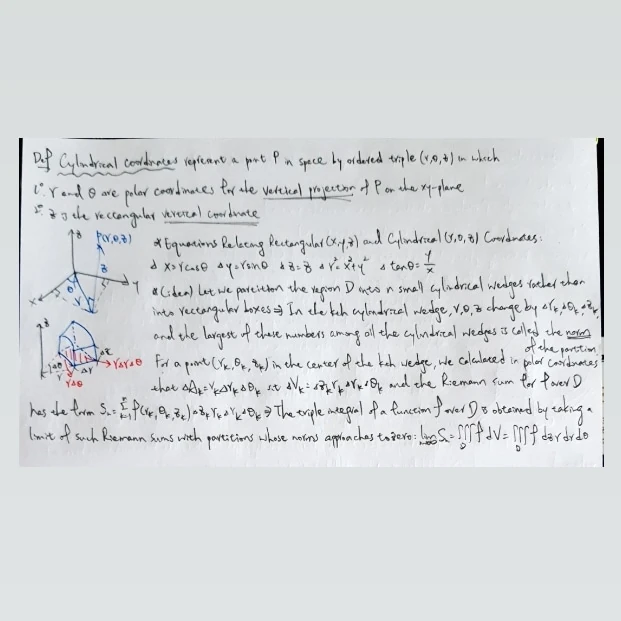 Def Cylindrical coordinates represent a point P in space by ordered triple (r,θ,z) in which
1° r and θ are polar coordinates for the vertical projection of P on the xy-plane
2° z is the rectangular vertical coordinate
z P(r,θ,z)
z
θ r
x y
* Equations Relating Rectangular (x,y,z) and Cylindrical (r,θ,z) Coordinates:
Δ x=rcosθ Δ y=rsinθ Δ z=z Δ r²=x²+y² Δ tanθ= y/x
* (idea) Let we partition the region D into n small cylindrical wedges rather than
into rectangular boxes ⇒ In the kth cylindrical wedge, r,θ,z change by Δrₖ,Δθₖ,Δzₖ,
and the largest of these numbers among all the cylindrical wedges is called the norm
of the partition
z
Δθ r Δr Δz
rΔrΔθ
rΔθ
For a point (rₖ,θₖ,zₖ) in the center of the kth wedge, we calculated in polar coordinates
that ΔAₖ=rₖΔrₖΔθₖ s.t ΔVₖ=ΔzₖrₖΔrₖΔθₖ and the Riemann sum for f over D
has the form Sₙ=Σⁿₖ₌₁ f(rₖ,θₖ,zₖ)ΔzₖrₖΔrₖΔθₖ ⇒ The triple integral of a function f over D is obtained by taking a
limit of such Riemann sums with partitions whose norms approaches to zero: lim n→∞ Sₙ=∭_D f dV=∭_D f dz r dr dθ